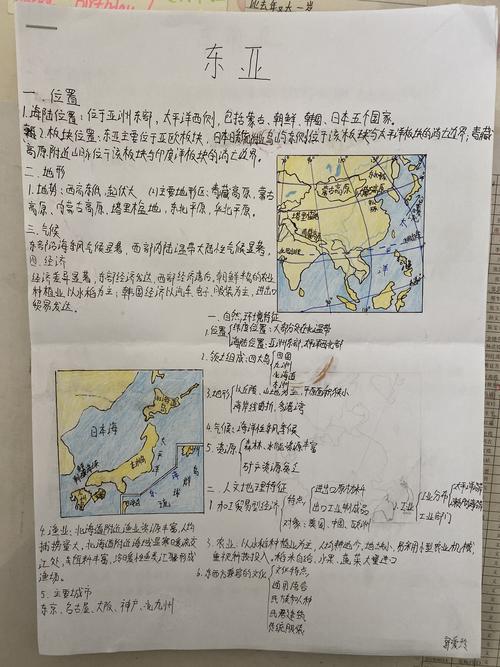 东亚
一.位置
1.海陆位置：位于亚洲东部，太平洋西侧，包括蒙古、朝鲜、韩国、日本五个国家。
2.板块位置：东亚主要位于亚欧板块，日本
位于该板块与太平洋板块的消亡边界，青藏
高原附近山脉位于该板块与印度洋板块的消亡边界。
二.地形
1.地势：西高东低，起伏大 (1)主要地形区：青藏高原，蒙古
高原、内蒙古高原、塔里木盆地，东北平原，华北平原。
三.气候
东部沿海季风气候显著，西部内陆温带大陆性气候显著。
四.经济
经济差异显著，东部经济发达，西部经济落后，朝鲜
种植业，以水稻为主；韩国经济以汽车、电子、服装为主，进出口
贸易发达。
蒙古高原
一.自然环境特征
1.位置
纬度位置：大部分处在北温带
海陆位置：亚洲东部，太平洋西北部
2.领土组成：四大岛
四国
九州
北海道
本州
3.地形
以丘陵、山地为主，平原面积狭小
海岸线曲折，多港湾
4.气候：海洋性季风气候
5.资源
森林、水能资源丰富
矿产资源贫乏
日本海
太平洋
二.人文地理特征
1.加工贸易型经济
特点
进口原材料
出口工业制成品
对象：美国、中国、欧洲
工业
工业分布
工业部门
3.农业：以水稻种植业为主，人均耕地少，
重视科技投入，稻米自给，小麦、蔬菜大量进口
4.渔业：北海道附近渔业资源丰富，人均
捕捞量大，北海道附近海域是寒暖流交
汇处，饵料丰富，
渔场。
5.主要城市
东京、名古屋、大阪、神户、北九州
6.东西方兼容的文化
文化特点
传统服装